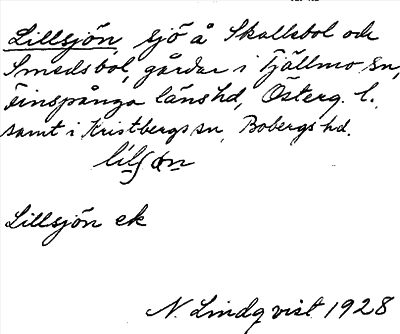 Lillsjön, sjö å Skallebol och
Smedsbol, gårdar i Tjällmo sn,
Finspånga länshd, Österg. l.,
samt i Kristbergs sn, Bobergs hd.
Lillsjön ek
N. Lindqvist 1928